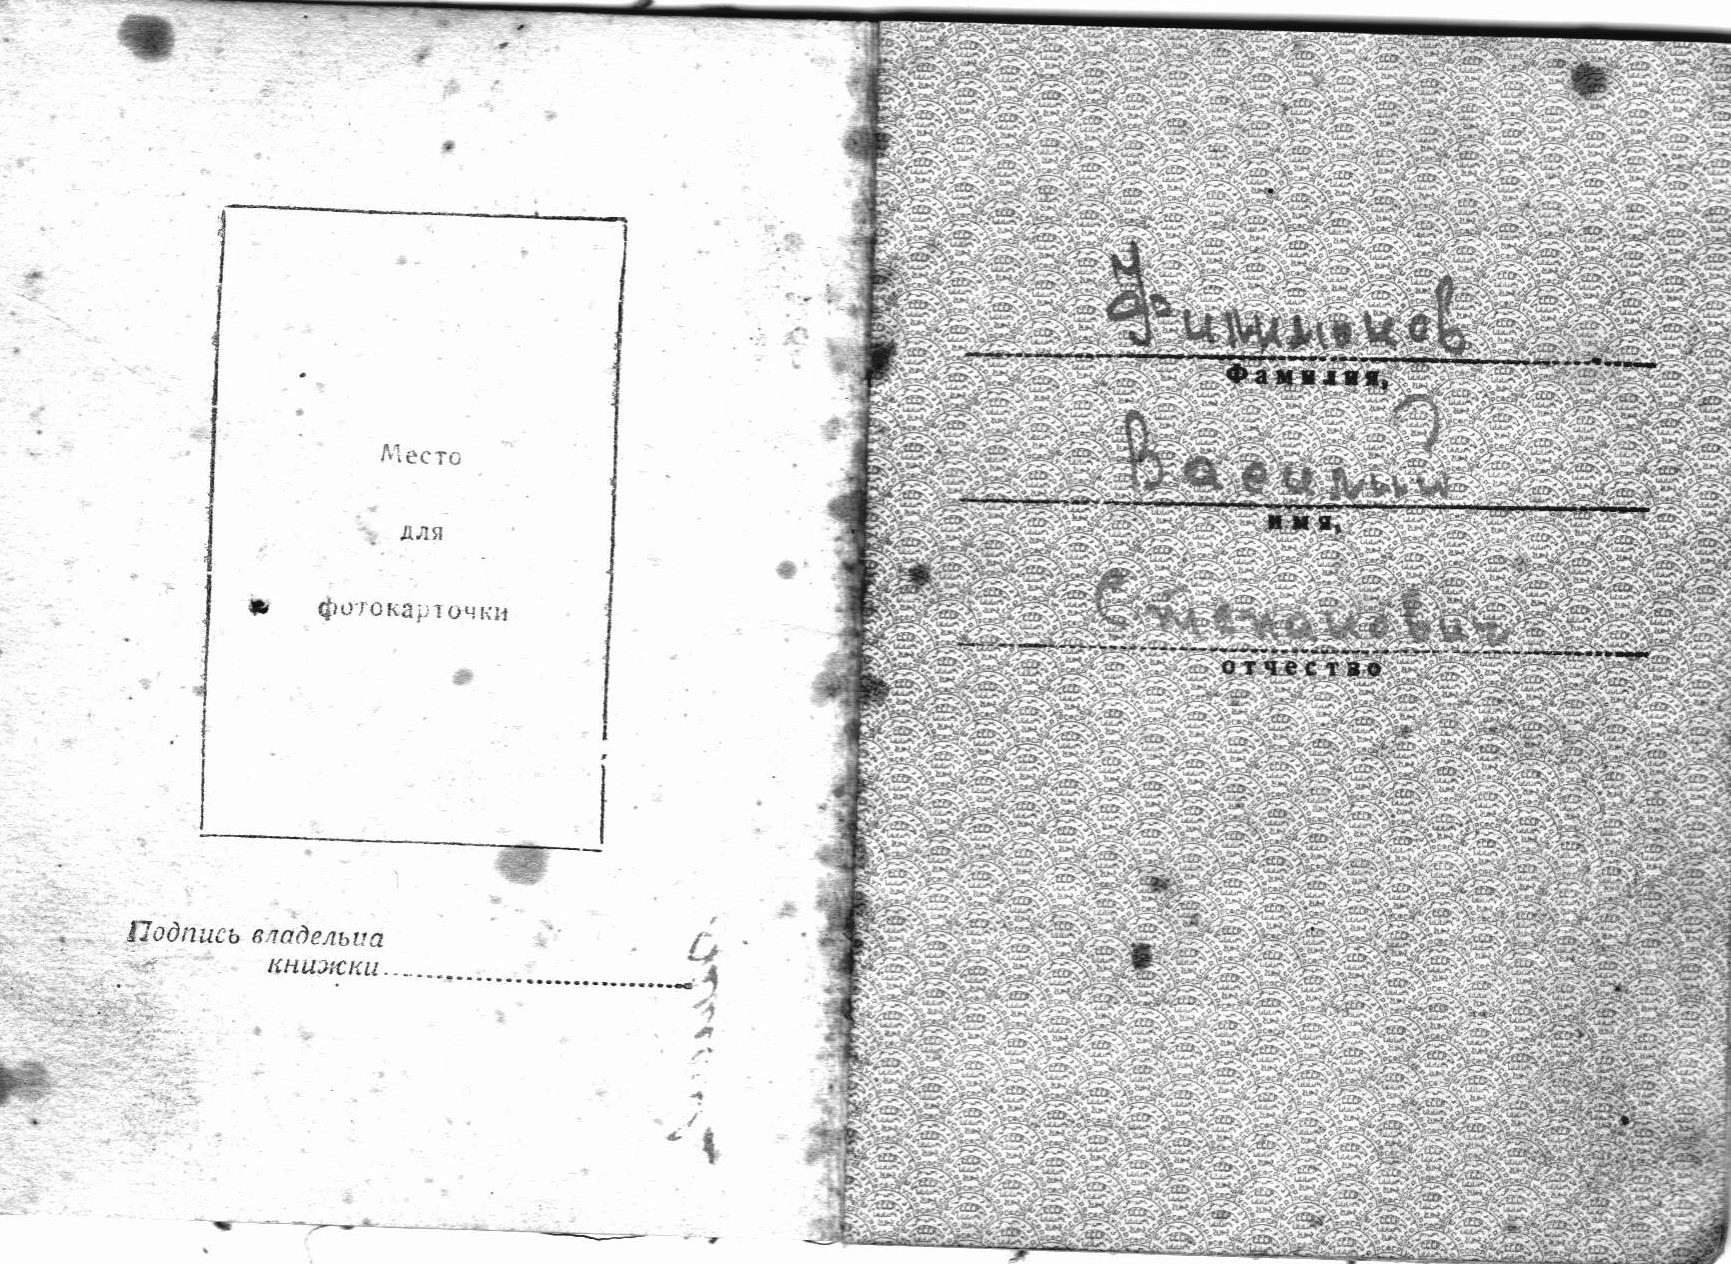 Место
для
фотокарточки
Подпись владельца
книжки
Фамилия,
Василий
имя,
Степанович
отчество